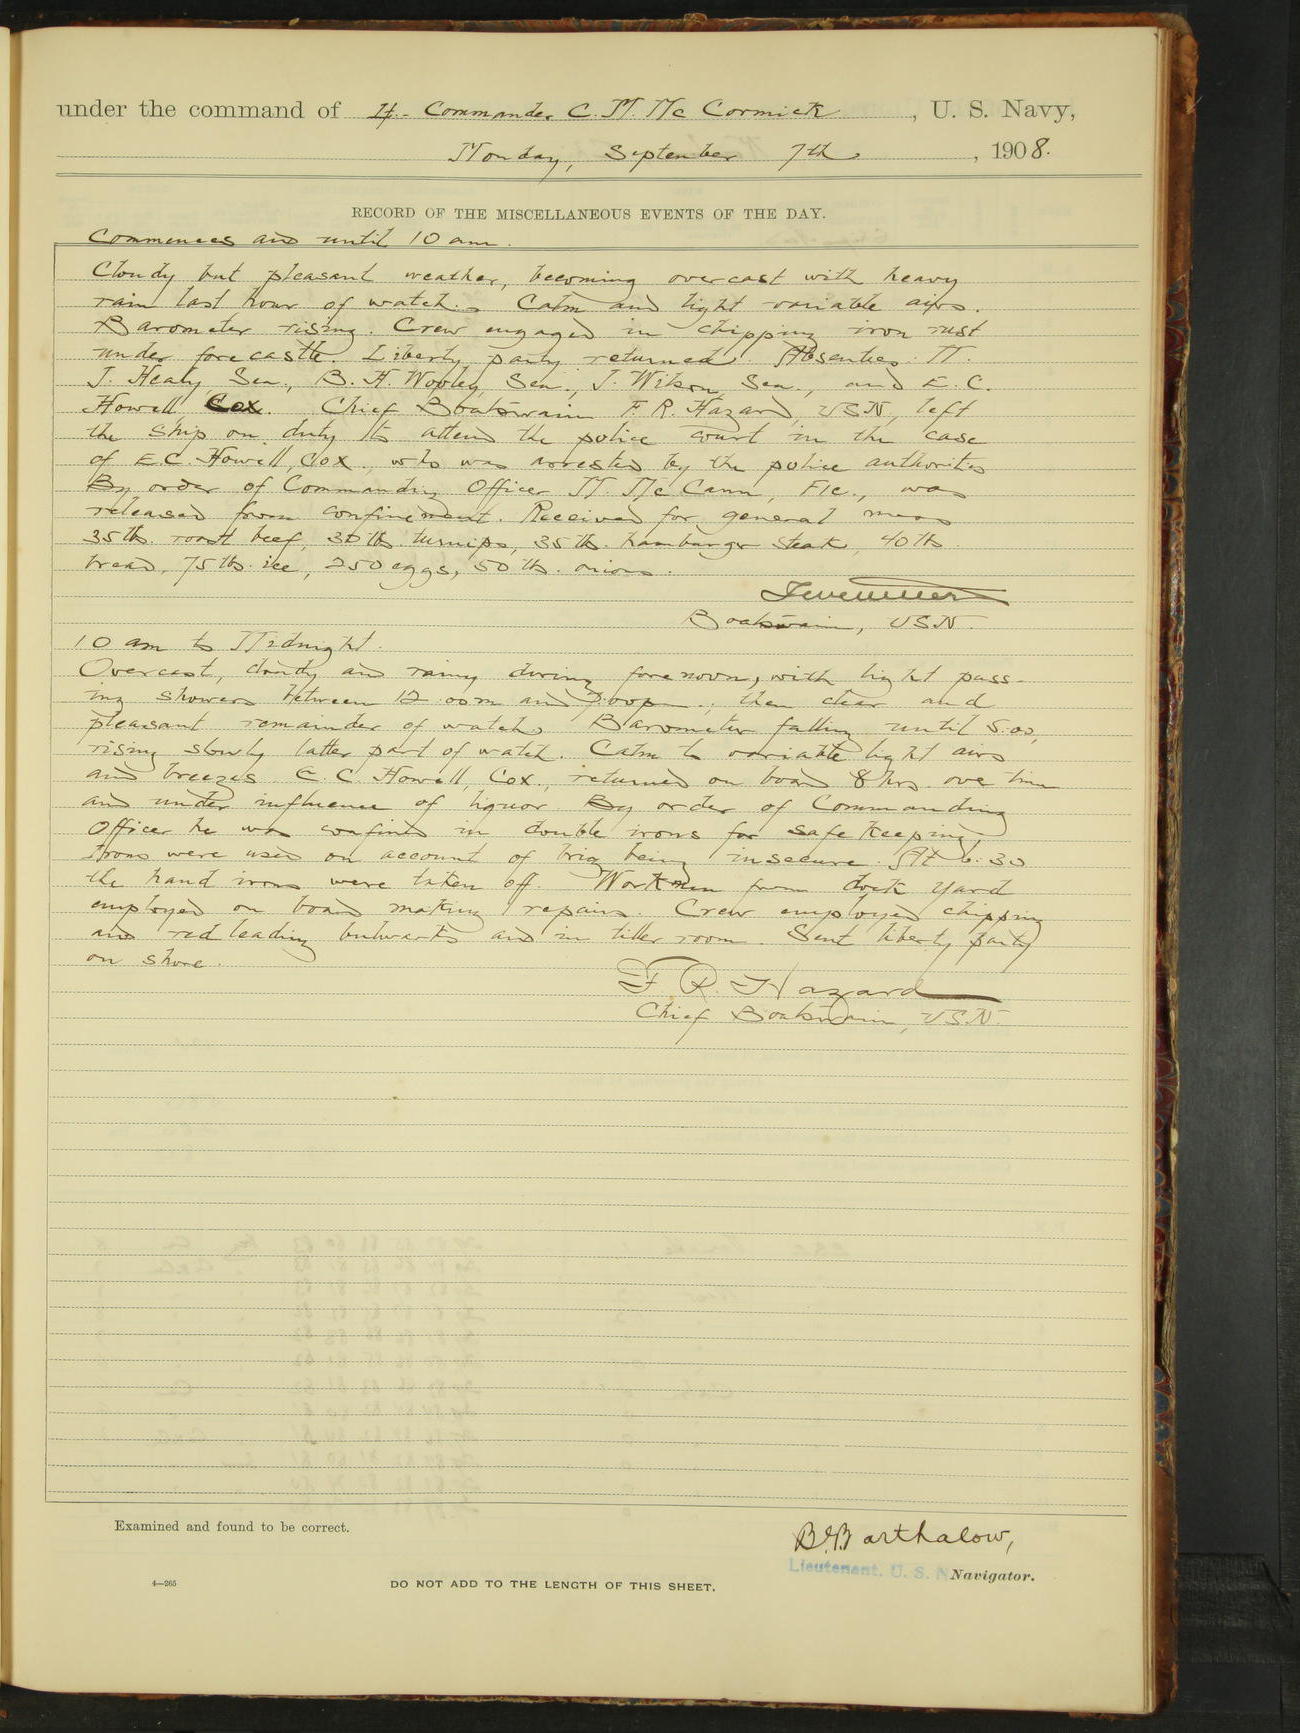 under the command of Lt. Commander C. M. McCormick, U. S. Navy,
Monday, September 7th, 1908.
RECORD OF THE MISCELLANEOUS EVENTS OF THE DAY.
Commences and until 10 am.
Cloudy but pleasant weather, becoming overcast with heavy
rain last hour of watch. Calm and light variable airs.
Barometer rising. Crew engaged in chipping iron rust
under forecastle. Liberty party returned. Absentees M.
J. Healy, Sea., B. H. Wooley, Sea., J. Wilson, Sea., and E. C.
Howell, Cox. Chief Boatswain F. R. Hazard, USN, left
the ship on duty to attend the police court in the case
of E.C. Howell, Cox., who was arrested by the police authorities
By order of Commanding Officer M. McCann, F1c., was
released from confinement. Received for general mess
35 lb. roast beef, 30 lb. turnips, 35 lb. hamburger steak, 40 lb
bread, 75 lb. ice, 250 eggs, 50 lb. onions.
Boatswain, USN.
10 am to Midnight.
Overcast, cloudy and rainy during forenoon, with light pass-
ing showers between 12.00m and p.m.; then clear and
pleasant remainder of watch. Barometer falling until 5.00,
rising slowly latter part of watch. Calm to variable light airs
and breezes. E. C. Howell, Cox., returned on board 8 hrs. over time
and under influence of liquor By order of Commanding
Officer he was confined in double irons for safe keeping,
Irons were used on account of brig being insecure. At 6.30
the hand irons were taken off. Workmen from dock yard
employed on board making repairs. Crew employed chipping
and red leading bulwarks and in tiller room. Sent liberty party
on shore.
F. R. Hazard
Chief Boatswain, USN.
Examined and found to be correct.
Barthalow,
Lieutenant, U. S. N Navigator.
4—265
DO NOT ADD TO THE LENGTH OF THIS SHEET.